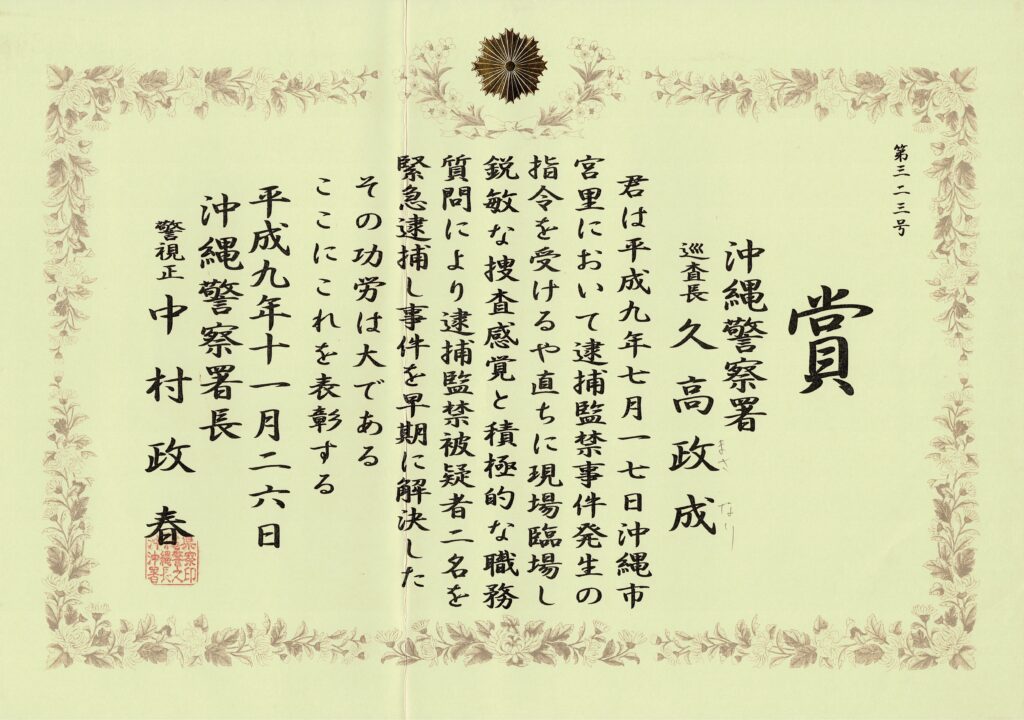 第三二三号
賞
沖縄警察署
巡査長 久高政成
まさ なり
君は平成九年七月一七日沖縄市
宮里において逮捕監禁事件発生の
指令を受けるや直ちに現場臨場し
鋭敏な捜査感覚と積極的な職務
質問により逮捕監禁被疑者二名を
緊急逮捕し事件を早期に解決した
その功労は大である
ここにこれを表彰する
平成九年十一月二六日
沖縄警察署長
警視正 中村政春